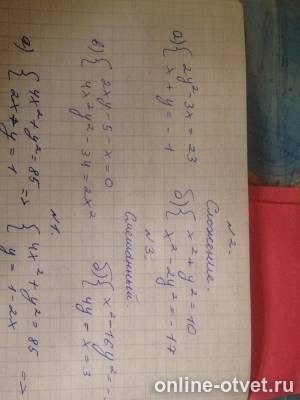 №2.
Сложение.
а) { 2y² - 3x = 23
x + y = -1
б) { x² + y² = 10
x² - 2y² = -17
№3.
Смешанный.
в) { 2xy - 5 - x = 0
4x²y² - 34 = 2x²
б) { x² - 16y² = -
4y = x = 3
№1.
а) { 4x² + y² = 85 =>
2x + y = 1
{ 4x² + y² = 85 =>
y = 1 - 2x
online-otvet.ru